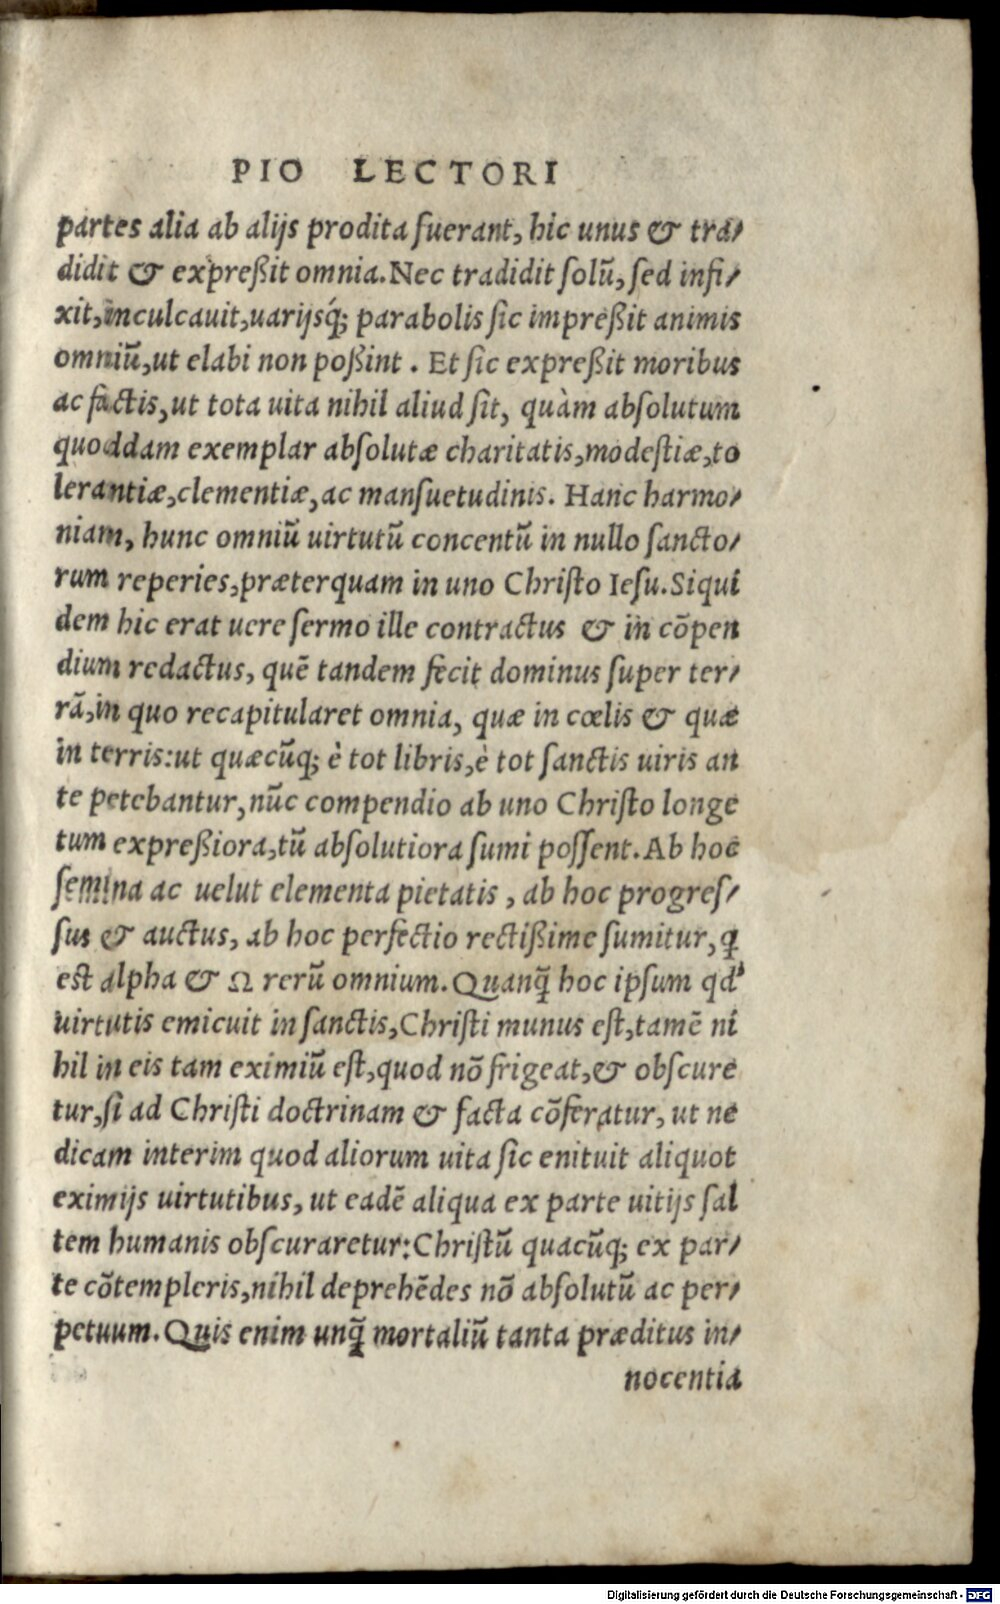 PIO LECTORI
partes alia ab alijs prodita fuerant, hic unus & tra/
didit & expreßit omnia. Nec tradidit solũ, sed infi/
xit, inculcauit, uarijsq́; parabolis sic impreßit animis
omniũ, ut elabi non poßint. Et sic expreßit moribus
ac factis, ut tota uita nihil aliud sit, quàm absolutum
quoddam exemplar absolutæ charitatis, modestiæ, to
lerantiæ, clementiæ, ac mansuetudinis. Hanc harmo/
niam, hunc omniũ uirtutũ concentũ in nullo sancto/
rum reperies, præterquam in uno Christo Iesu. Siqui
dem hic erat uere sermo ille contractus & in cõpen
dium redactus, quẽ tandem fecit dominus super ter/
rã, in quo recapitularet omnia, quæ in cœlis & quæ
in terris: ut quæcũq; è tot libris, è tot sanctis uiris an
te petebantur, nũc compendio ab uno Christo longe
tum expreßiora, tũ absolutiora sumi possent. Ab hoc
semina ac uelut elementa pietatis, ab hoc progres/
sus & auctus, ab hoc perfectio rectißime sumitur, ꝗ
est alpha & Ω rerũ omnium. Quanq̃ hoc ipsum qd'
uirtutis emicuit in sanctis, Christi munus est, tamẽ ni
hil in eis tam eximiũ est, quod nõ frigeat, & obscure
tur, si ad Christi doctrinam & facta cõferatur, ut ne
dicam interim quod aliorum uita sic enituit aliquot
eximijs uirtutibus, ut eadẽ aliqua ex parte uitijs sal
tem humanis obscuraretur: Christũ quacũq; ex par/
te cõtempleris, nihil deprehẽdes nõ absolutũ ac per/
petuum. Quis enim unq̃ mortaliũ tanta præditus in/
nocentia
Digitalisierung gefördert durch die Deutsche Forschungsgemeinschaft - DFG